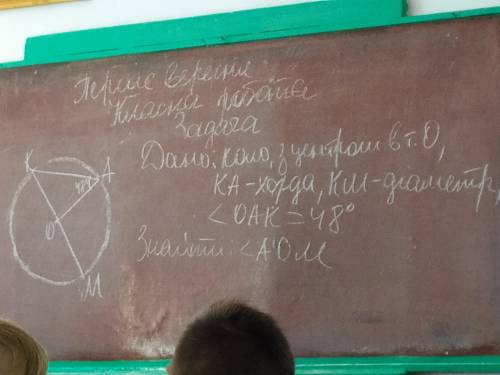 Перше вересня
Класна робота
Задача
Дано: коло, з центром в т. О,
КА-хорда, КМ-діаметр,
<ОАК = 48°
Знайти: <АОМ
К
А
48°
О
М